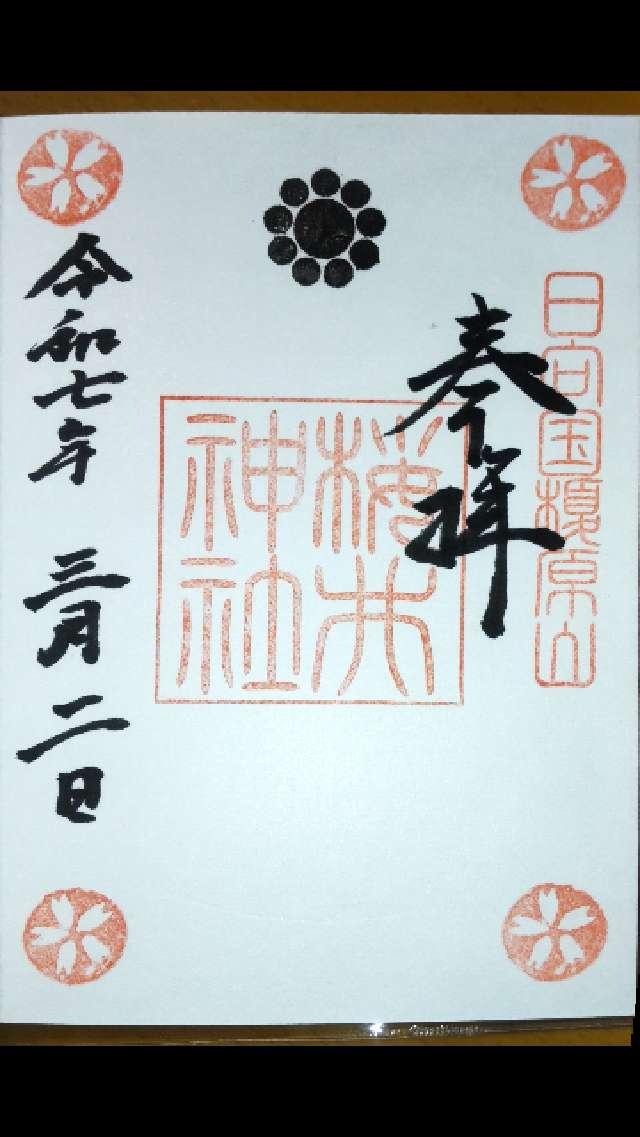 日向国櫻原山
奉拝
桜井
神社
令和七年 三月 二日